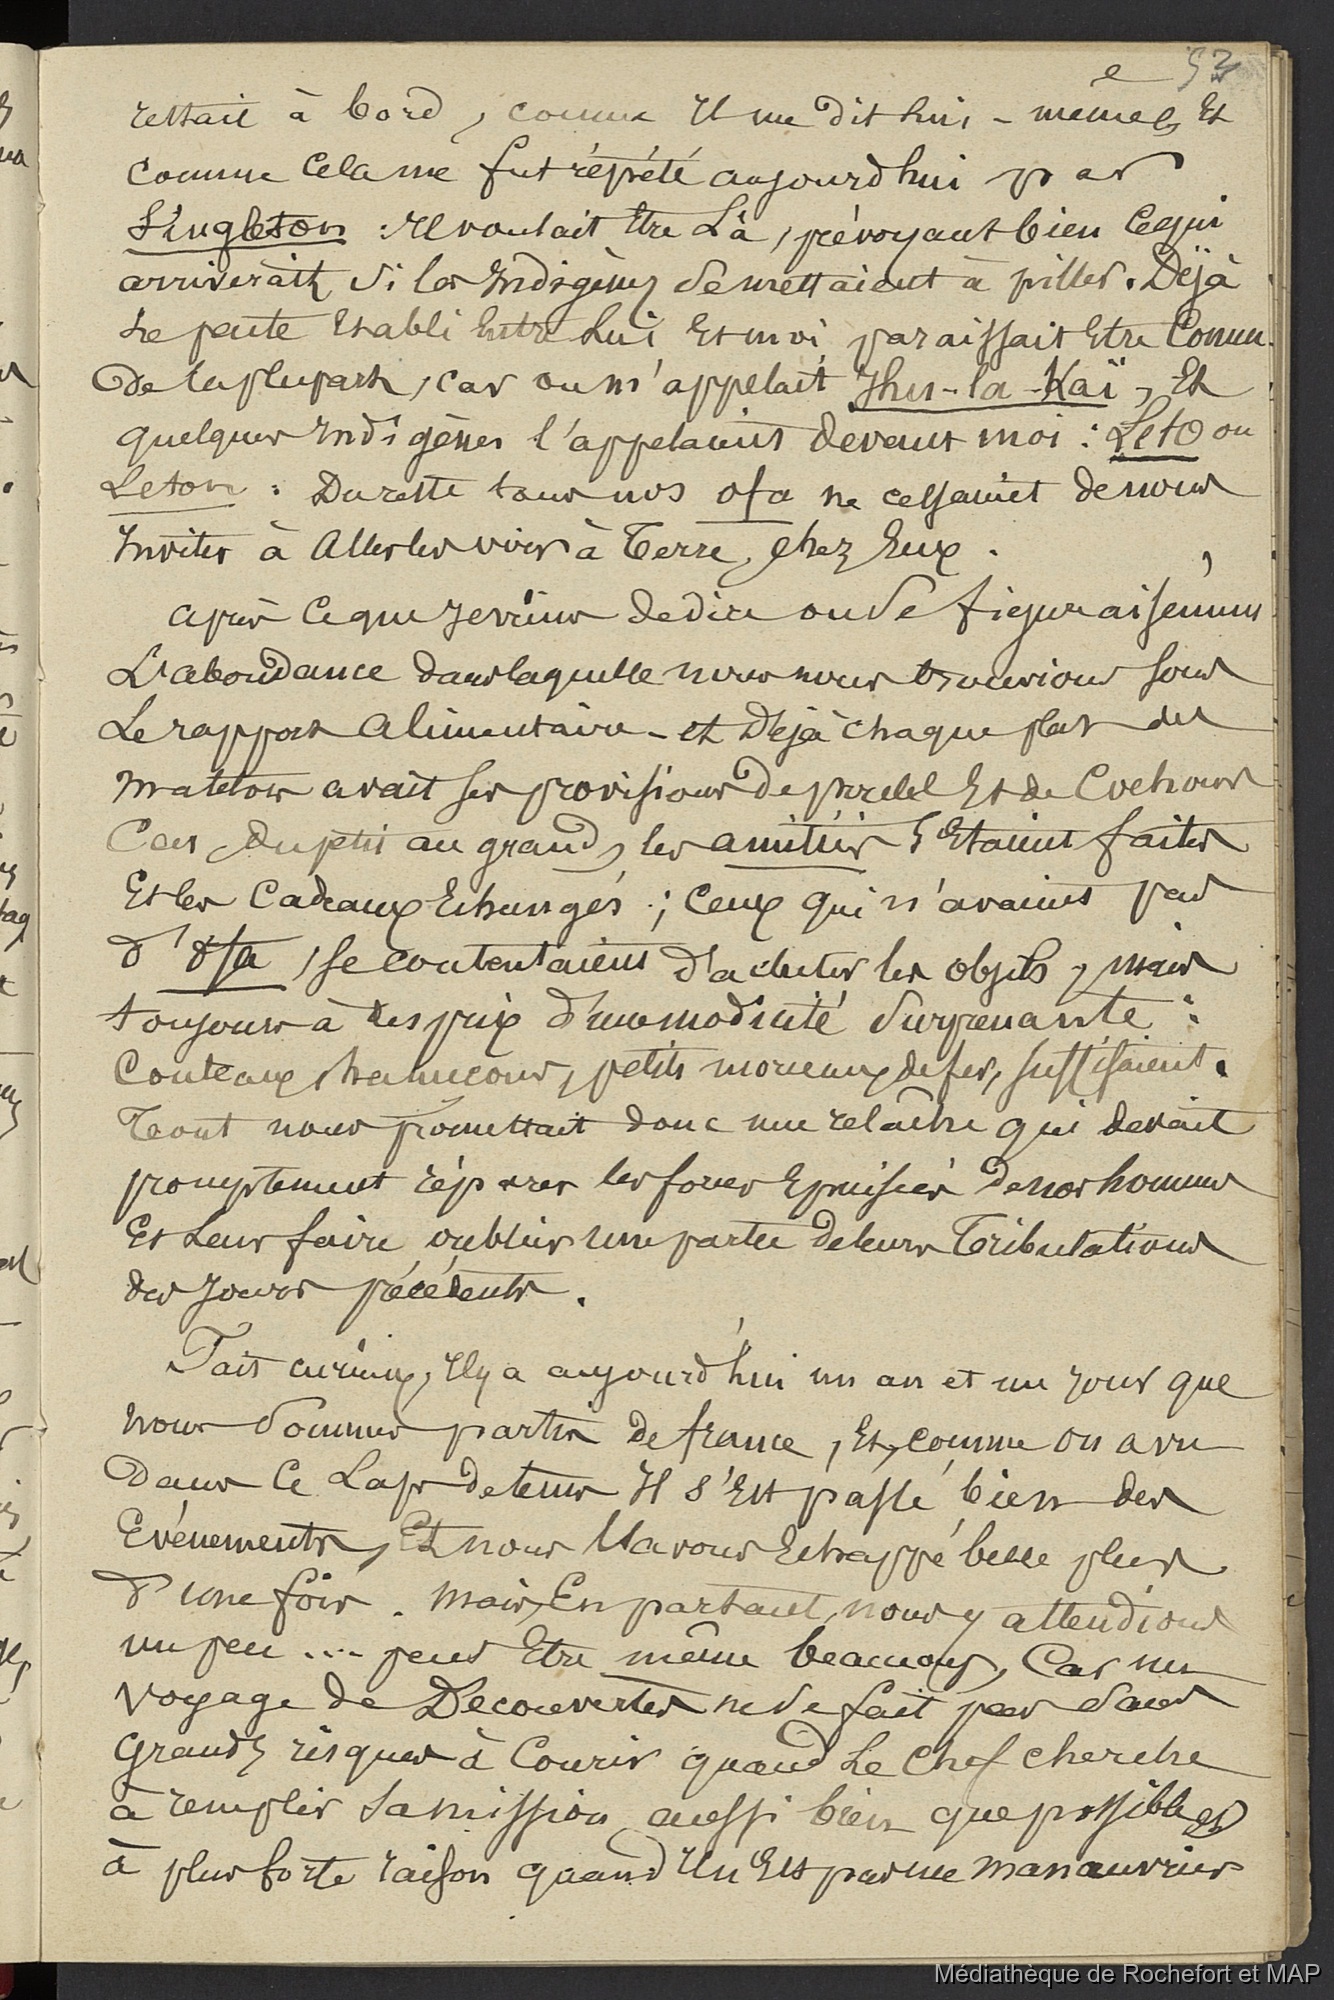 e 53
restait à bord, comme Il me dit lui-même, Et
comme Cela me fut répété aujourd'hui par
Singleton : Il voulait Etre Là, prévoyant bien Cequi
arriverait si les Indigènes se mettaient à piller. Déjà
Le pacte Etabli Entre Lui Et moi paraissait Etre Connu
De la plupart, car on m'appelait -la-Kaï, Et
quelques Indigènes l'appelaient devant moi : Leto ou
Leton : Du reste tous nos ofa ne cessaient de nous
Inviter à Aller les voir à Terre, chez Eux.
après Ceque Je viens de dire on se figure aisément
L'abondance dans laquelle nous nous trouvions sous
Le rapport Alimentaire - et Déjà chaque plat des
matelots avait ses provisions De poules Et de Cochons
Car, du petit au grand, les amitiés s'Etaient faites
Et les Cadeaux Echangés ; Ceux qui n'avaient pas
d'ofa, se contentaient d'acheter les objets, mais
toujours à des prix d'une modicité surprenante :
Couteaux, hameçons, petits morceaux de fer, suffisaient.
Tout nous promettait donc une relâche qui devait
promptement réparer les forces Epuisées de nos hommes
Et Leur faire oublier une partie de leurs Tribulations
des Jours précédents.
Fait curieux, Il y a aujourd'hui un an et un Jour que
nous sommes partis De france, Et, comme on a vu
Dans Ce Laps de tems Il s'Est passé bien des
Evénements, Et nous l'avons Echappé belle plus
d'une fois. Mais, En partant, nous y attendions
un peu .... peut Etre même beaucoup, Car un
voyage de Découvertes ne se fait pas sans
Grands risques à Courir quand Le Chef cherche
à remplir sa mission aussi bien que possible et
à plus forte raison quand Il n'Est pas me manœuvrier
Médiathèque de Rochefort et MAP